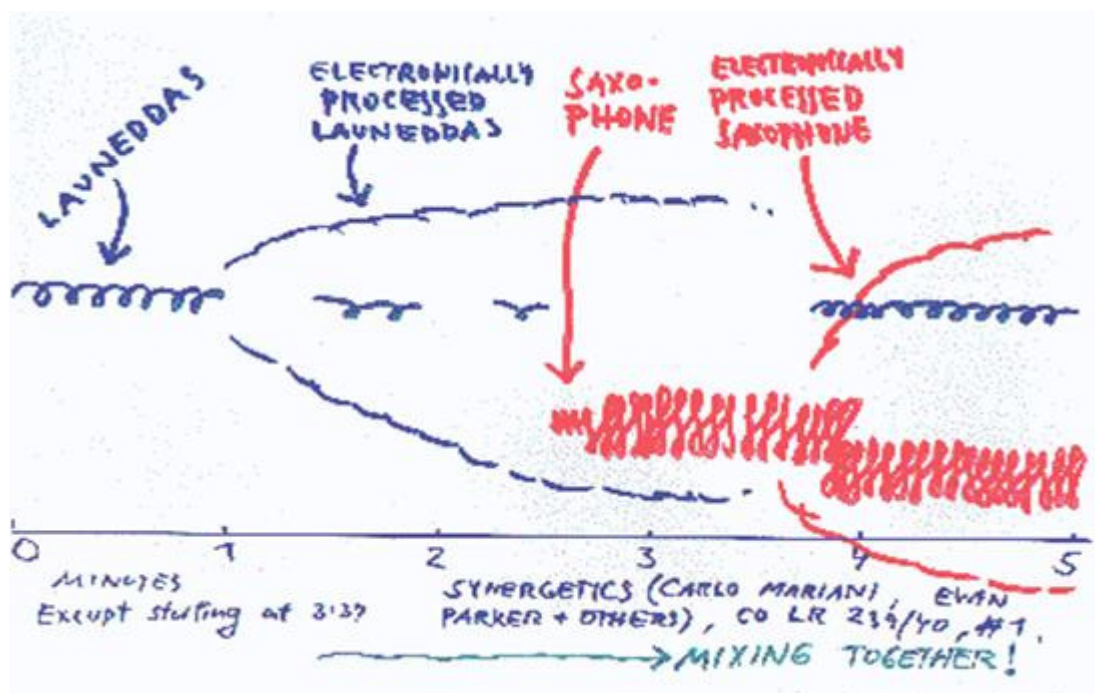 LAUNEDDAS
ELECTRONICALLY
PROCESSED
LAUNEDDAS
SAXO-
PHONE
ELECTRONICALLY
PROCESSED
SAXOPHONE
0 1 2 3 4 5
MINUTES
Excerpt starting at 3:37
SYNERGETICS (CARLO MARIANI, EVAN
PARKER + OTHERS), CD LR 239/40, #1.
MIXING TOGETHER!